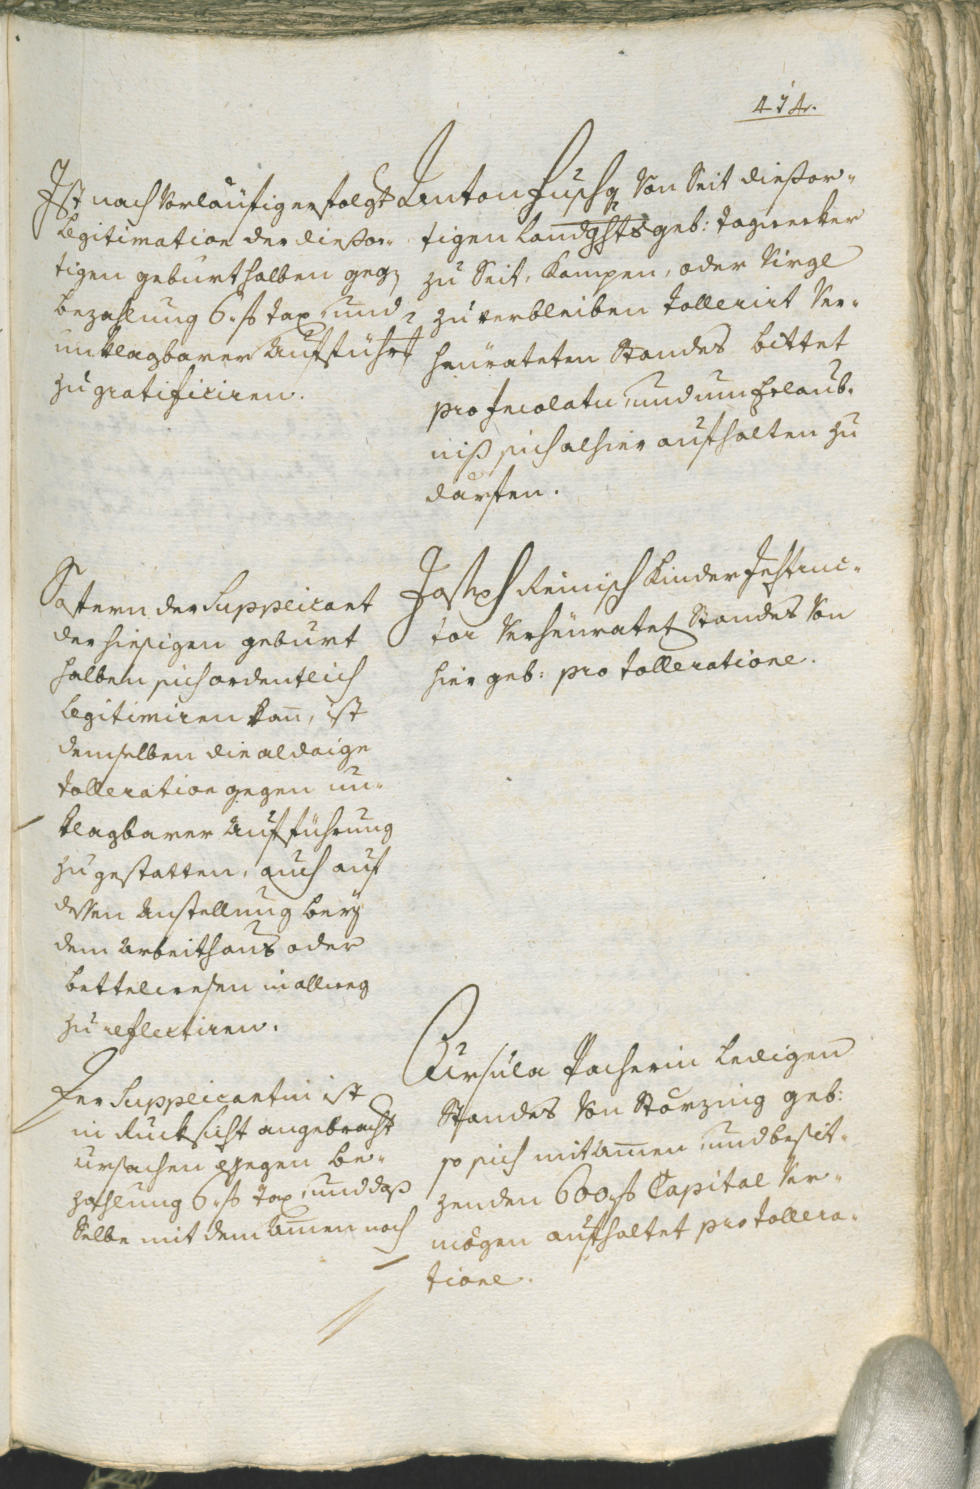 414.
Ist nach Vorläufig erfolgt
Legitimation der dießor-
tigen geburthalben geg
bezahlung 6. f Tax, und
unklagbarer Aufführt
zu gratificiren.
Anton Huscher Von Seit dießor-
tigen Landghts geb: Tagwerker
zu Seit, Kampen, oder Virgl
zu verbleiben tollerirt Ver-
heürateten Standes bittet
pro Incolatu, und um Erlaub-
niß sich alhier aufhalten zu
därfen.
Sofern der Supplicant
der hiesigen geburt
halben sich ordentlich
legitimiren kañ, ist
demselben die aldaige
tolleration gegen un-
klagbarer Aufführung
zu gestatten, auch auf
dessen Anstellung bey
dem Arbeithaus oder
bettelwesen in allweg
zu reflectiren.
Joseph Reinisch Kinder Instruc-
tor Verheüratet Standes Von
hier geb: pro tolleratione.
Der Supplicantin ist
in Rucksicht angebracht
ursachen gegen be-
zahlung 6. f Tax, und daß
Selbe mit dem Amen noch
Ursula Pacherin ledigen
Standes Von Störzing geb:
so sich mit Amen, und besit-
zenden 600 f Capital Ver-
mögen aufhaltet pro tollera-
tione.